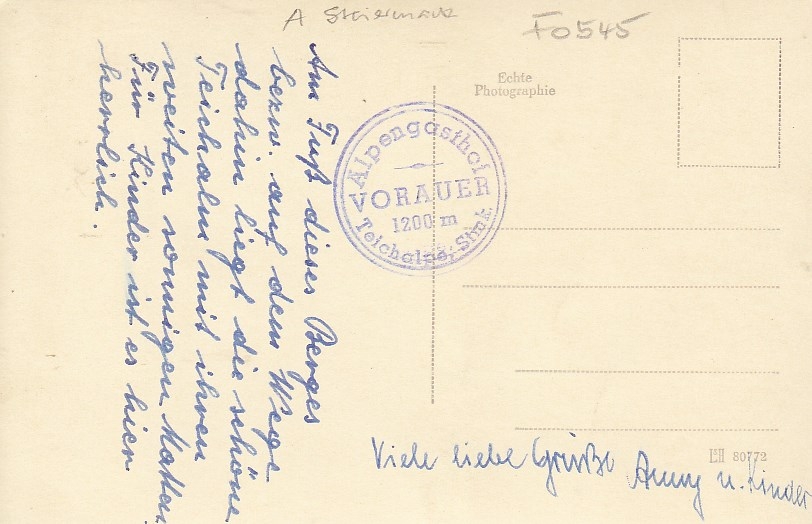 A Steiermark
F0545
Echte
Photographie
Alpengasthof
VORAUER
1200 m
Teichalpe, Stmk.
Am Fuß dieses Berges
bezw. auf dem Wege
dahin liegt die schöne
Teichalm mit ihren
weiten sonnigen Matten
Für Kinder ist es hier
herrlich.
Viele liebe Grüße
u. Kinder
80772